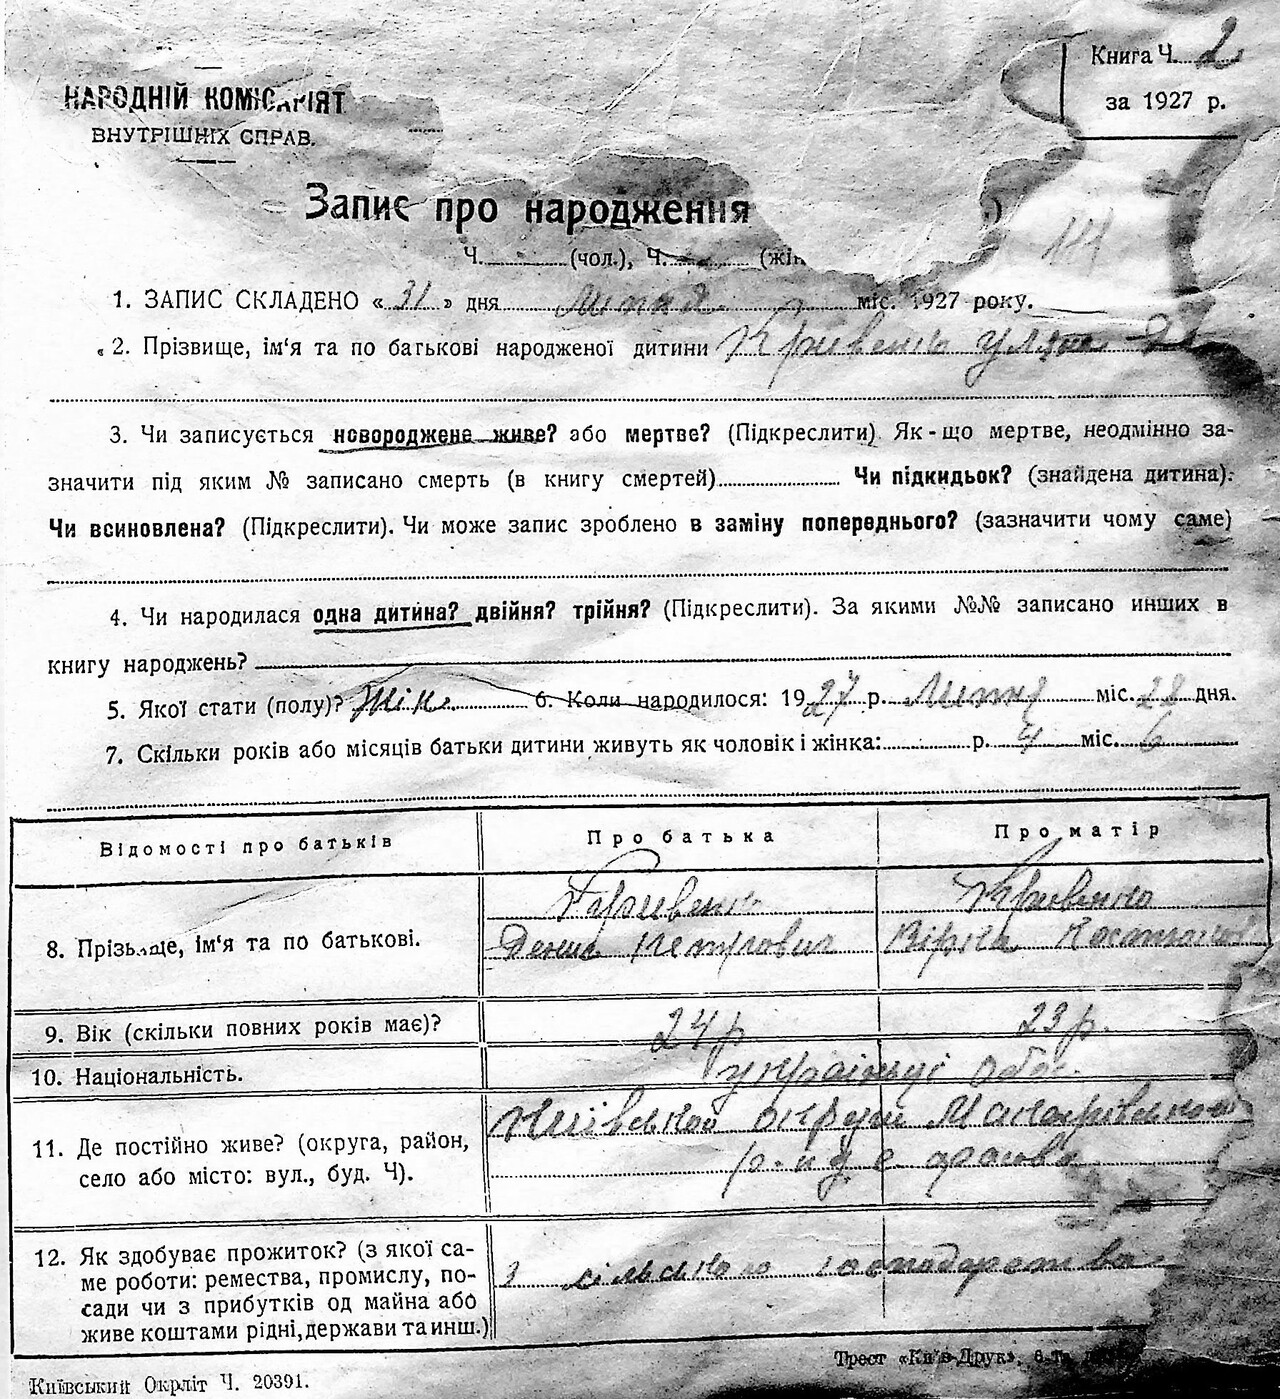 Книга Ч. 2
за 1927 р.
НАРОДНІЙ КОМІСАРІЯТ
ВНУТРІШНІХ СПРАВ.
Запис про народження
Ч. (чол.), Ч. (жін
1. ЗАПИС СКЛАДЕНО «31» дня Липня міс. 1927 року.
2. Прізвище, ім'я та по батькові народженої дитини Кривенко Уляна
3. Чи записується новороджене живе? або мертве? (Підкреслити). Як-що мертве, неодмінно за-
значити під яким № записано смерть (в книгу смертей) Чи підкидьок? (знайдена дитина).
Чи всиновлена? (Підкреслити). Чи може запис зроблено в заміну попереднього? (зазначити чому саме)
4. Чи народилася одна дитина? двійня? трійня? (Підкреслити). За якими №№ записано инших в
книгу народжень?
5. Якої стати (полу)? Жін. 6. Коли народилося: 1927 р. Липня міс. 28 дня.
7. Скільки років або місяців батьки дитини живуть як чоловік і жінка: р. 4 міс. 6
Відомості про батьків Про батька Про матір
8. Прізвище, ім'я та по батькові. Кривенко Кривенко
Денис Петрович
9. Вік (скільки повних років має)? 24 р 23 р.
10. Національність. українці обоє.
11. Де постійно живе? (округа, район, Київської округи Макарівського
село або місто: вул., буд. Ч). р.
12. Як здобуває прожиток? (з якої са-
ме роботи: ремества, промислу, по- З сільського господарства
сади чи з прибутків од майна або
живе коштами рідні, держави та инш.)
Трест «Київ-Друк»,
Київський Окрліт Ч. 20391.